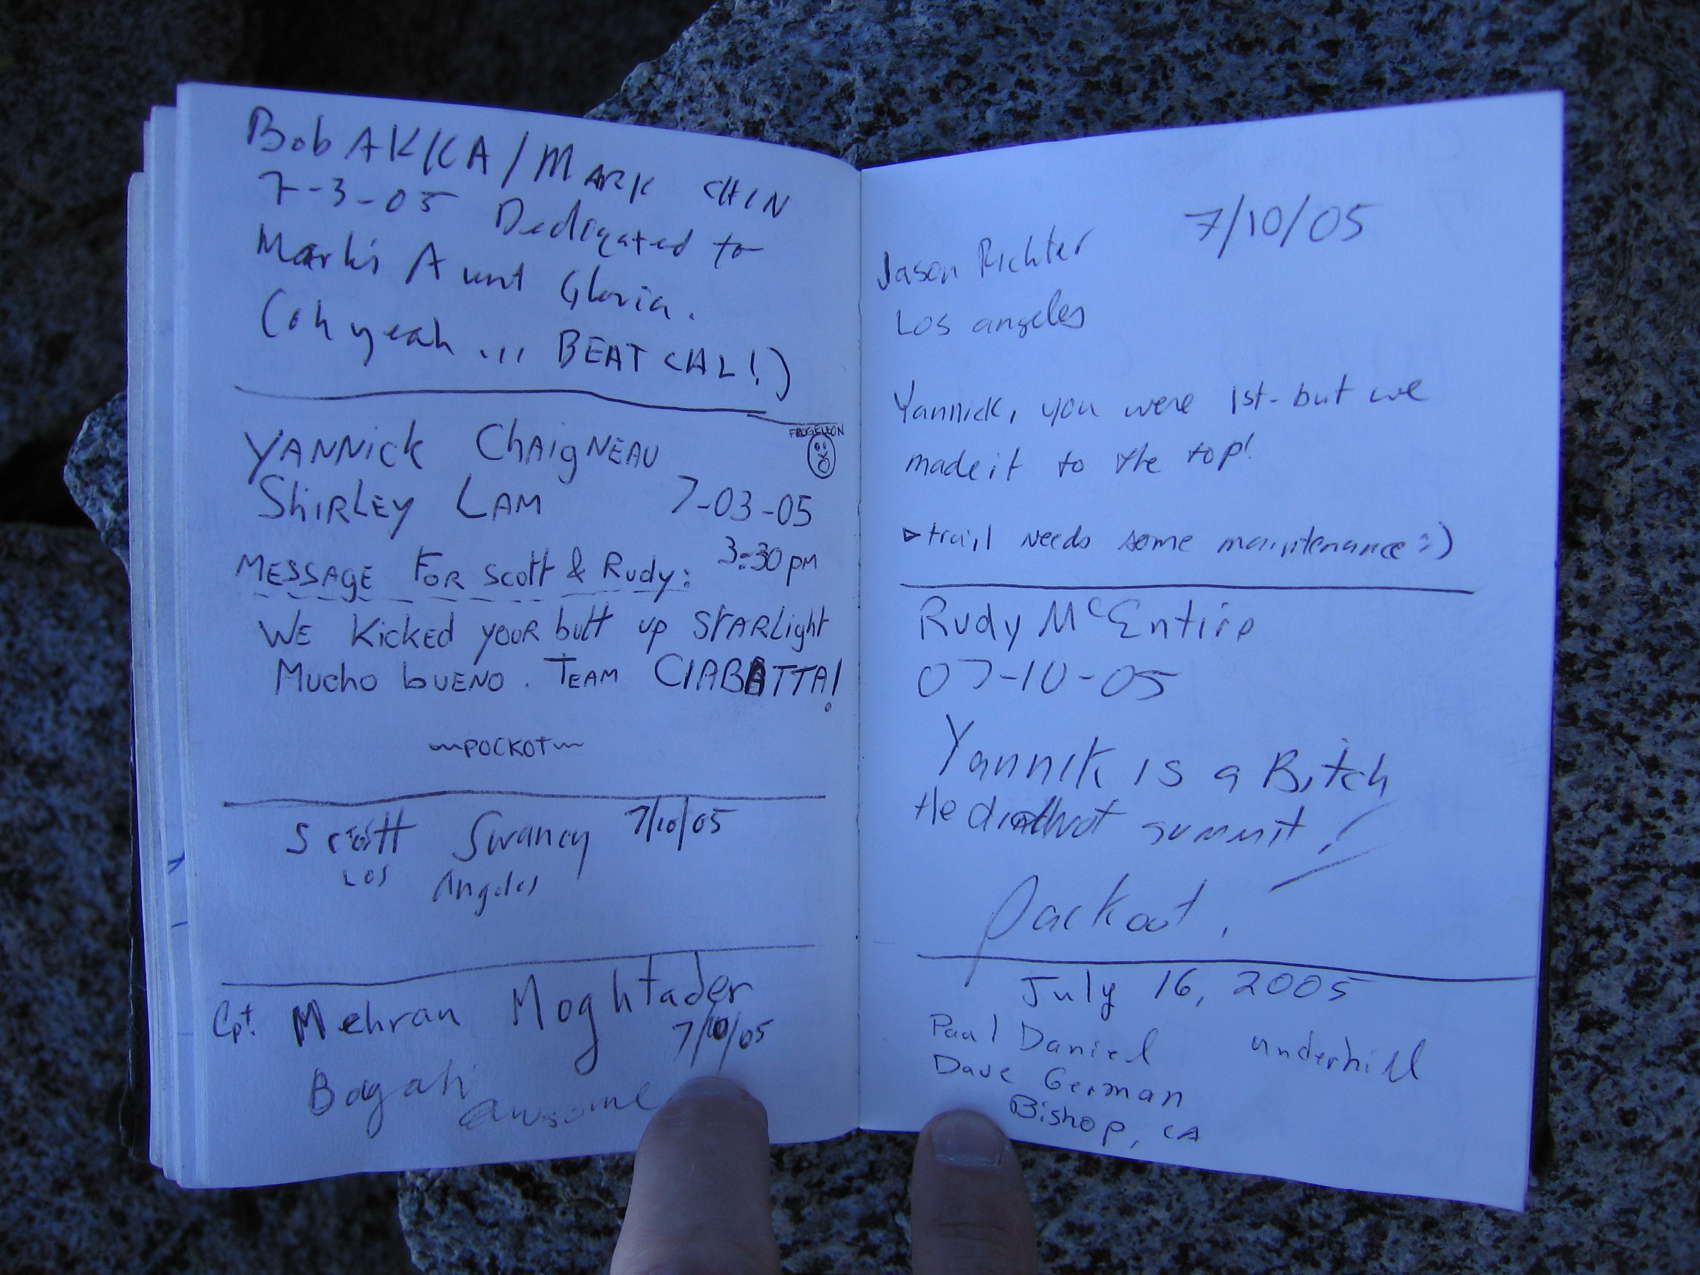 Bob AKKA / MARK CHIN
7-3-05 Dedicated to
Mark's Aunt Gloria.
(oh yeah ... BEAT CAL!)
YANNick CHAigNEAU
SHiRLEY LAM 7-03-05
MESSAGE FOR Scott & Rudy: 3:30pm
WE Kicked youR butt up STARLight
Mucho buENO. TEAM CIABATTA!
~POCKOT~
Scott Swaney 7/10/05
Los Angeles
Cpt. Mehran Moghtader
7/10/05
awsome
7/10/05
Jason Richter
Los angeles
Yannick, you were 1st - but we
made it to the top!
trail needs some maintenance :)
Rudy McEntire
07-10-05
Yannik is a Bitch
He did not summit!
Packoot.
July 16, 2005
Paul Daniel underhill
Dave German
Bishop, CA